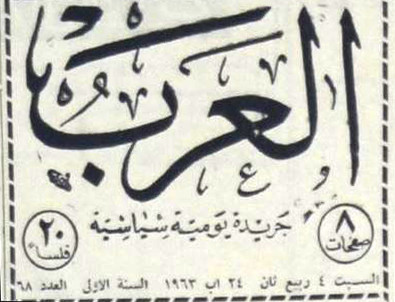 العرب
جريدة يومية سياسية
٨ صفحات
٢٠ فلسا
السبت ٤ ربيع ثان ٢٤ اب ١٩٦٣ السنة الاولى العدد ٦٨